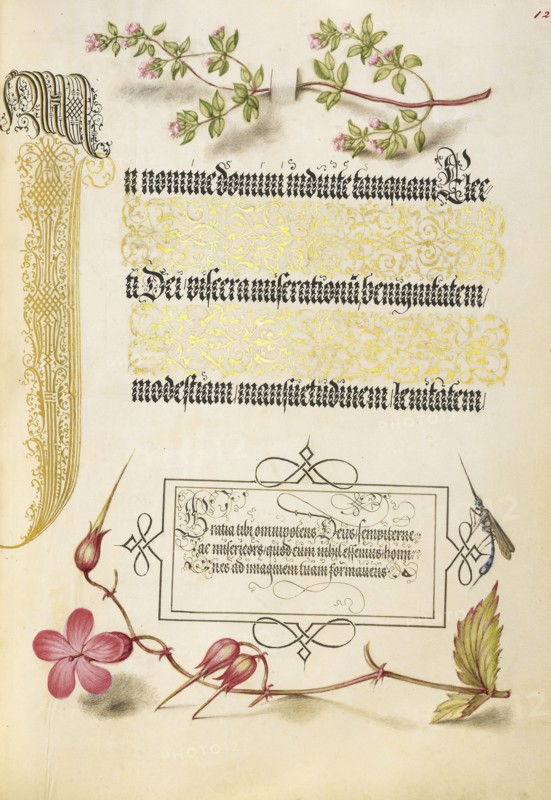 12
In nomine domini induite tanquam Elec
ti Dei viscera miserationis, benignitatem
modestiam mansuetudinem lenitatem
Gratia tibi omnipotens Deus sempiterne
ac misericors, quod cum nihil essemus homi
nes ad imaginem tuam formaveris
PHOTO12